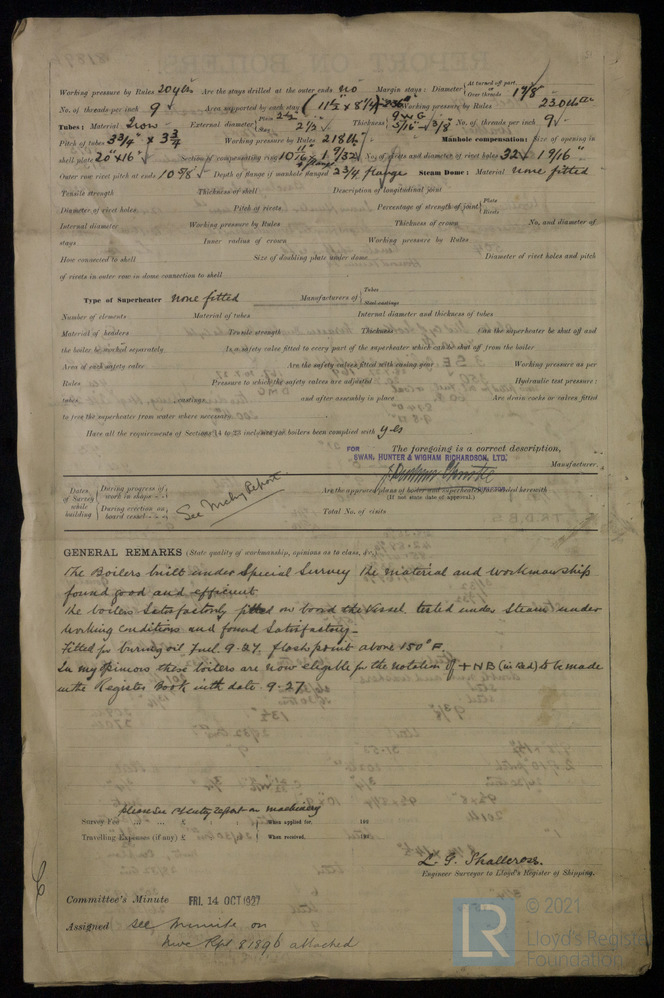 Working pressure by Rules 204 lbs Are the stays drilled at the outer ends no Margin stays: Diameter { At turned off part, or Over threads 1 7/8
No. of threads per inch 9 Area supported by each stay (11 1/2 x 8 1/4) Working pressure by Rules 230 lbs
Tubes: Material Iron External diameter { Plain 2 1/2 Stay 2 1/2 Thickness { 9 WG 5/16" 3/8 No. of threads per inch 9
Pitch of tubes 3 3/4" x 3 3/4 Working pressure by Rules 218 lbs Manhole compensation: Size of opening in
shell plate 20" x 16" Section of compensating ring No. of rivets and diameter of rivet holes 32 1 9/16"
Outer row rivet pitch at ends 10 5/8 Depth of flange if manhole flanged 2 3/4 flange Steam Dome: Material none fitted
Tensile strength Thickness of shell Description of longitudinal joint
Diameter of rivet holes Pitch of rivets Percentage of strength of joint { Plate Rivets
Internal diameter Working pressure by Rules Thickness of crown No. and diameter of
stays Inner radius of crown Working pressure by Rules
How connected to shell Size of doubling plate under dome Diameter of rivet holes and pitch
of rivets in outer row in dome connection to shell
Type of Superheater none fitted Manufacturers of { Tubes Steel castings
Number of elements Material of tubes Internal diameter and thickness of tubes
Material of headers Tensile strength Thickness Can the superheater be shut off and
the boiler be worked separately Is a safety valve fitted to every part of the superheater which can be shut off from the boiler
Area of each safety valve Are the safety valves fitted with easing gear Working pressure as per
Rules Pressure to which the safety valves are adjusted Hydraulic test pressure:
tubes castings and after assembly in place Are drain cocks or valves fitted
to free the superheater from water where necessary
Have all the requirements of Sections 14 to 23 inclusive for boilers been complied with yes
FOR The foregoing is a correct description,
SWAN, HUNTER & WIGHAM RICHARDSON, LTD.
Manufacturer.
Dates of Survey while building { During progress of work in shops - - During erection on board vessel - - - See Mchy Report. Are the approved plans of boiler and superheater forwarded herewith
(If not state date of approval.)
Total No. of visits
GENERAL REMARKS (State quality of workmanship, opinions as to class, &c.)
The Boilers built under Special Survey the material and workmanship
found good and efficient
The boilers satisfactorily fitted on board the vessel tested under steam under
working conditions and found satisfactory.
Fitted for burning oil fuel 9.27. flash point above 150°F.
In my opinion these boilers are now eligible for the notation of + NB (in red) to be made
in the Register Book with date 9-27.
Please see 1st Entry Report on machinery
Survey Fee ... ... £ When applied for, 192
Travelling Expenses (if any) £ When received, 192
L. G. Shallcross.
Engineer Surveyor to Lloyd's Register of Shipping.
Committee's Minute FRI. 14 OCT 1927
Assigned see minute on
Nwc Rpt 81896 attached
LR © 2021
Lloyd's Register
Foundation